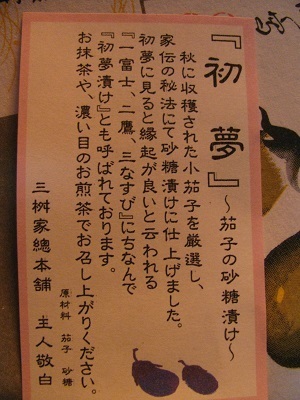 『初夢』～茄子の砂糖漬け～
秋に収穫された小茄子を厳選し、
家伝の秘法にて砂糖漬けに仕上げました。
初夢に見ると縁起が良いと云われる
『一富士、二鷹、三なすび』にちなんで
『初夢漬け』とも呼ばれております。
お抹茶や、濃い目のお煎茶でお召し上がりください。
原材料 茄子 砂糖
三桝家總本舗 主人敬白